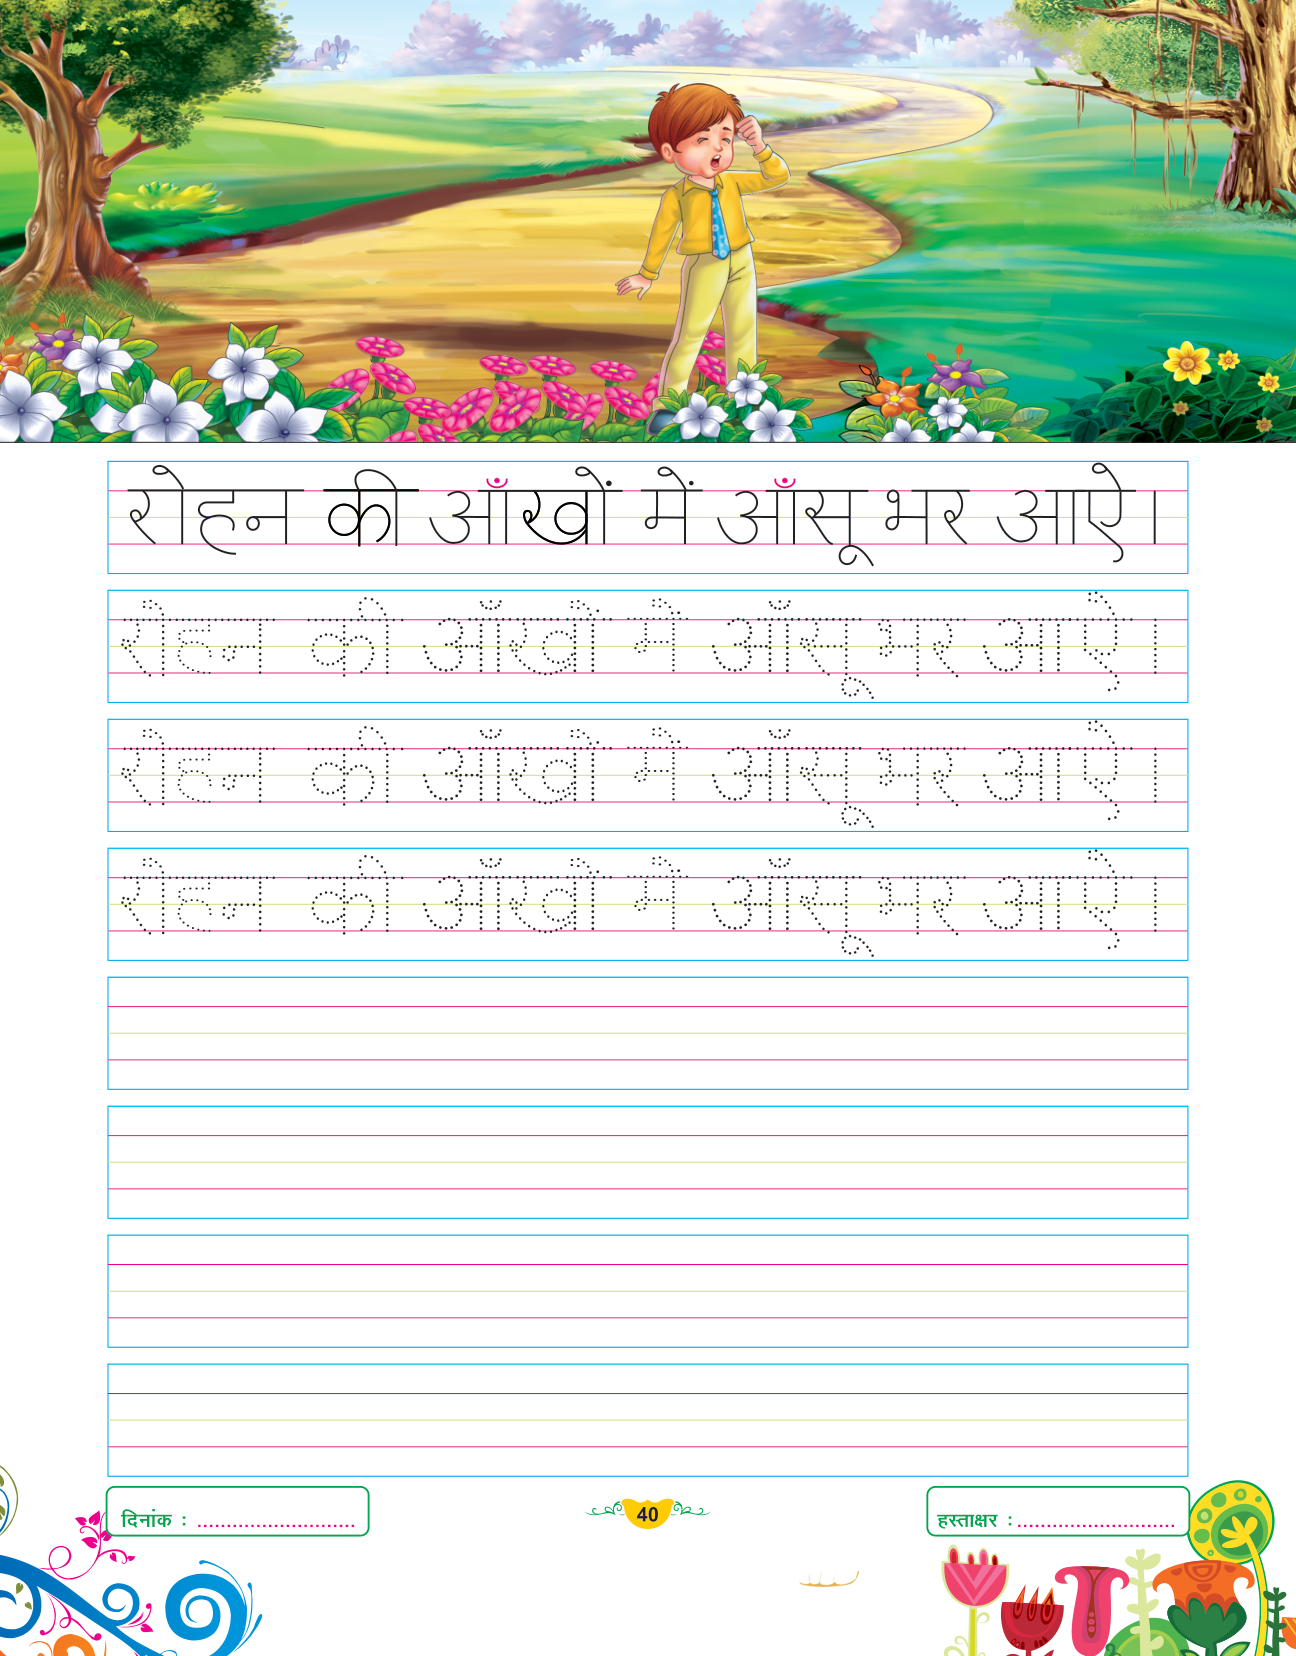 रोहन की आँखों में आँसू भर आऐ।
रोहन की आँखों में आँसू भर आऐ।
रोहन की आँखों में आँसू भर आऐ।
रोहन की आँखों में आँसू भर आऐ।
दिनांक : ............................ 40 हस्ताक्षर : ............................